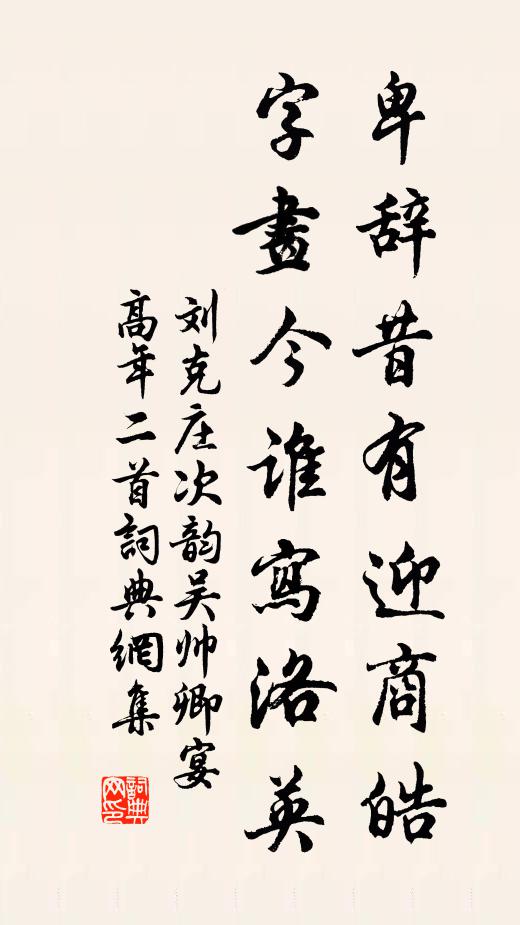 卑辞昔有迎商皓
字畫今谁寫洛英
刘克庄次韵吴帅卿宴
高年二首詞典網集
詞典网印